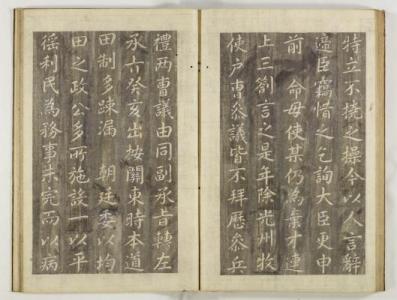 特立不撓之操今以人言辭
遞臣竊惜之乞詢大臣更申
前命毋使某仍為棄才連
上三劄言之是年除光州牧
使戶曹參議皆不拜歷參兵
禮兩曹議由同副承旨轉左
承旨癸亥出按關東時本道
田制多踈漏 朝廷委以均
田之政公多所施設一以平
徭利民為務事未完而以病